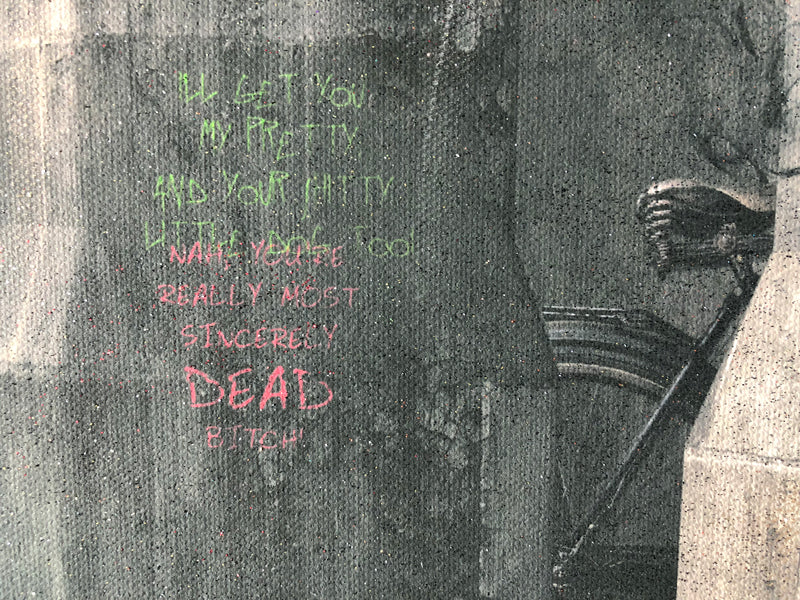 I'LL GET YOU
MY PRETTY
AND YOUR
LITTLE DOG TOO!
NAH, YOU'RE
REALLY MOST
SINCERELY
DEAD
BITCH!